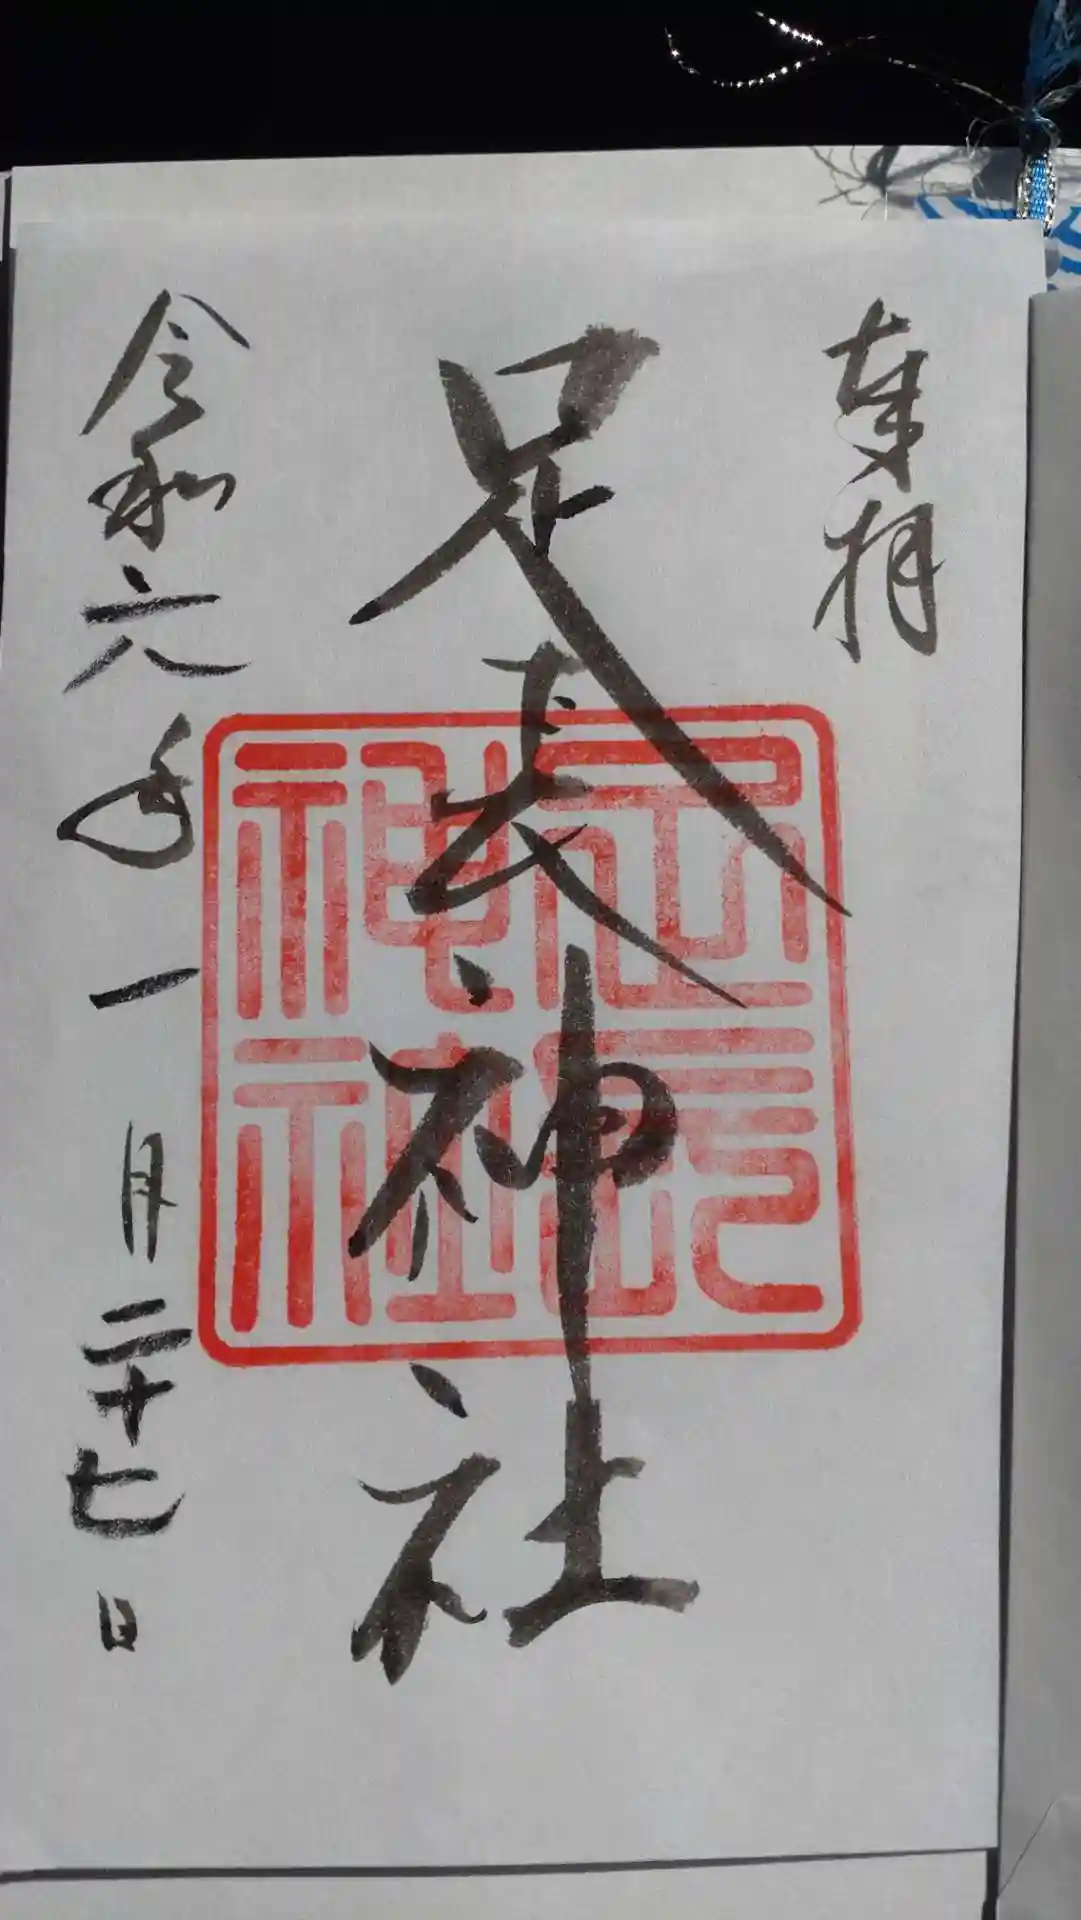 奉拝
足長神社
足長神社
令和六年一月二十七日